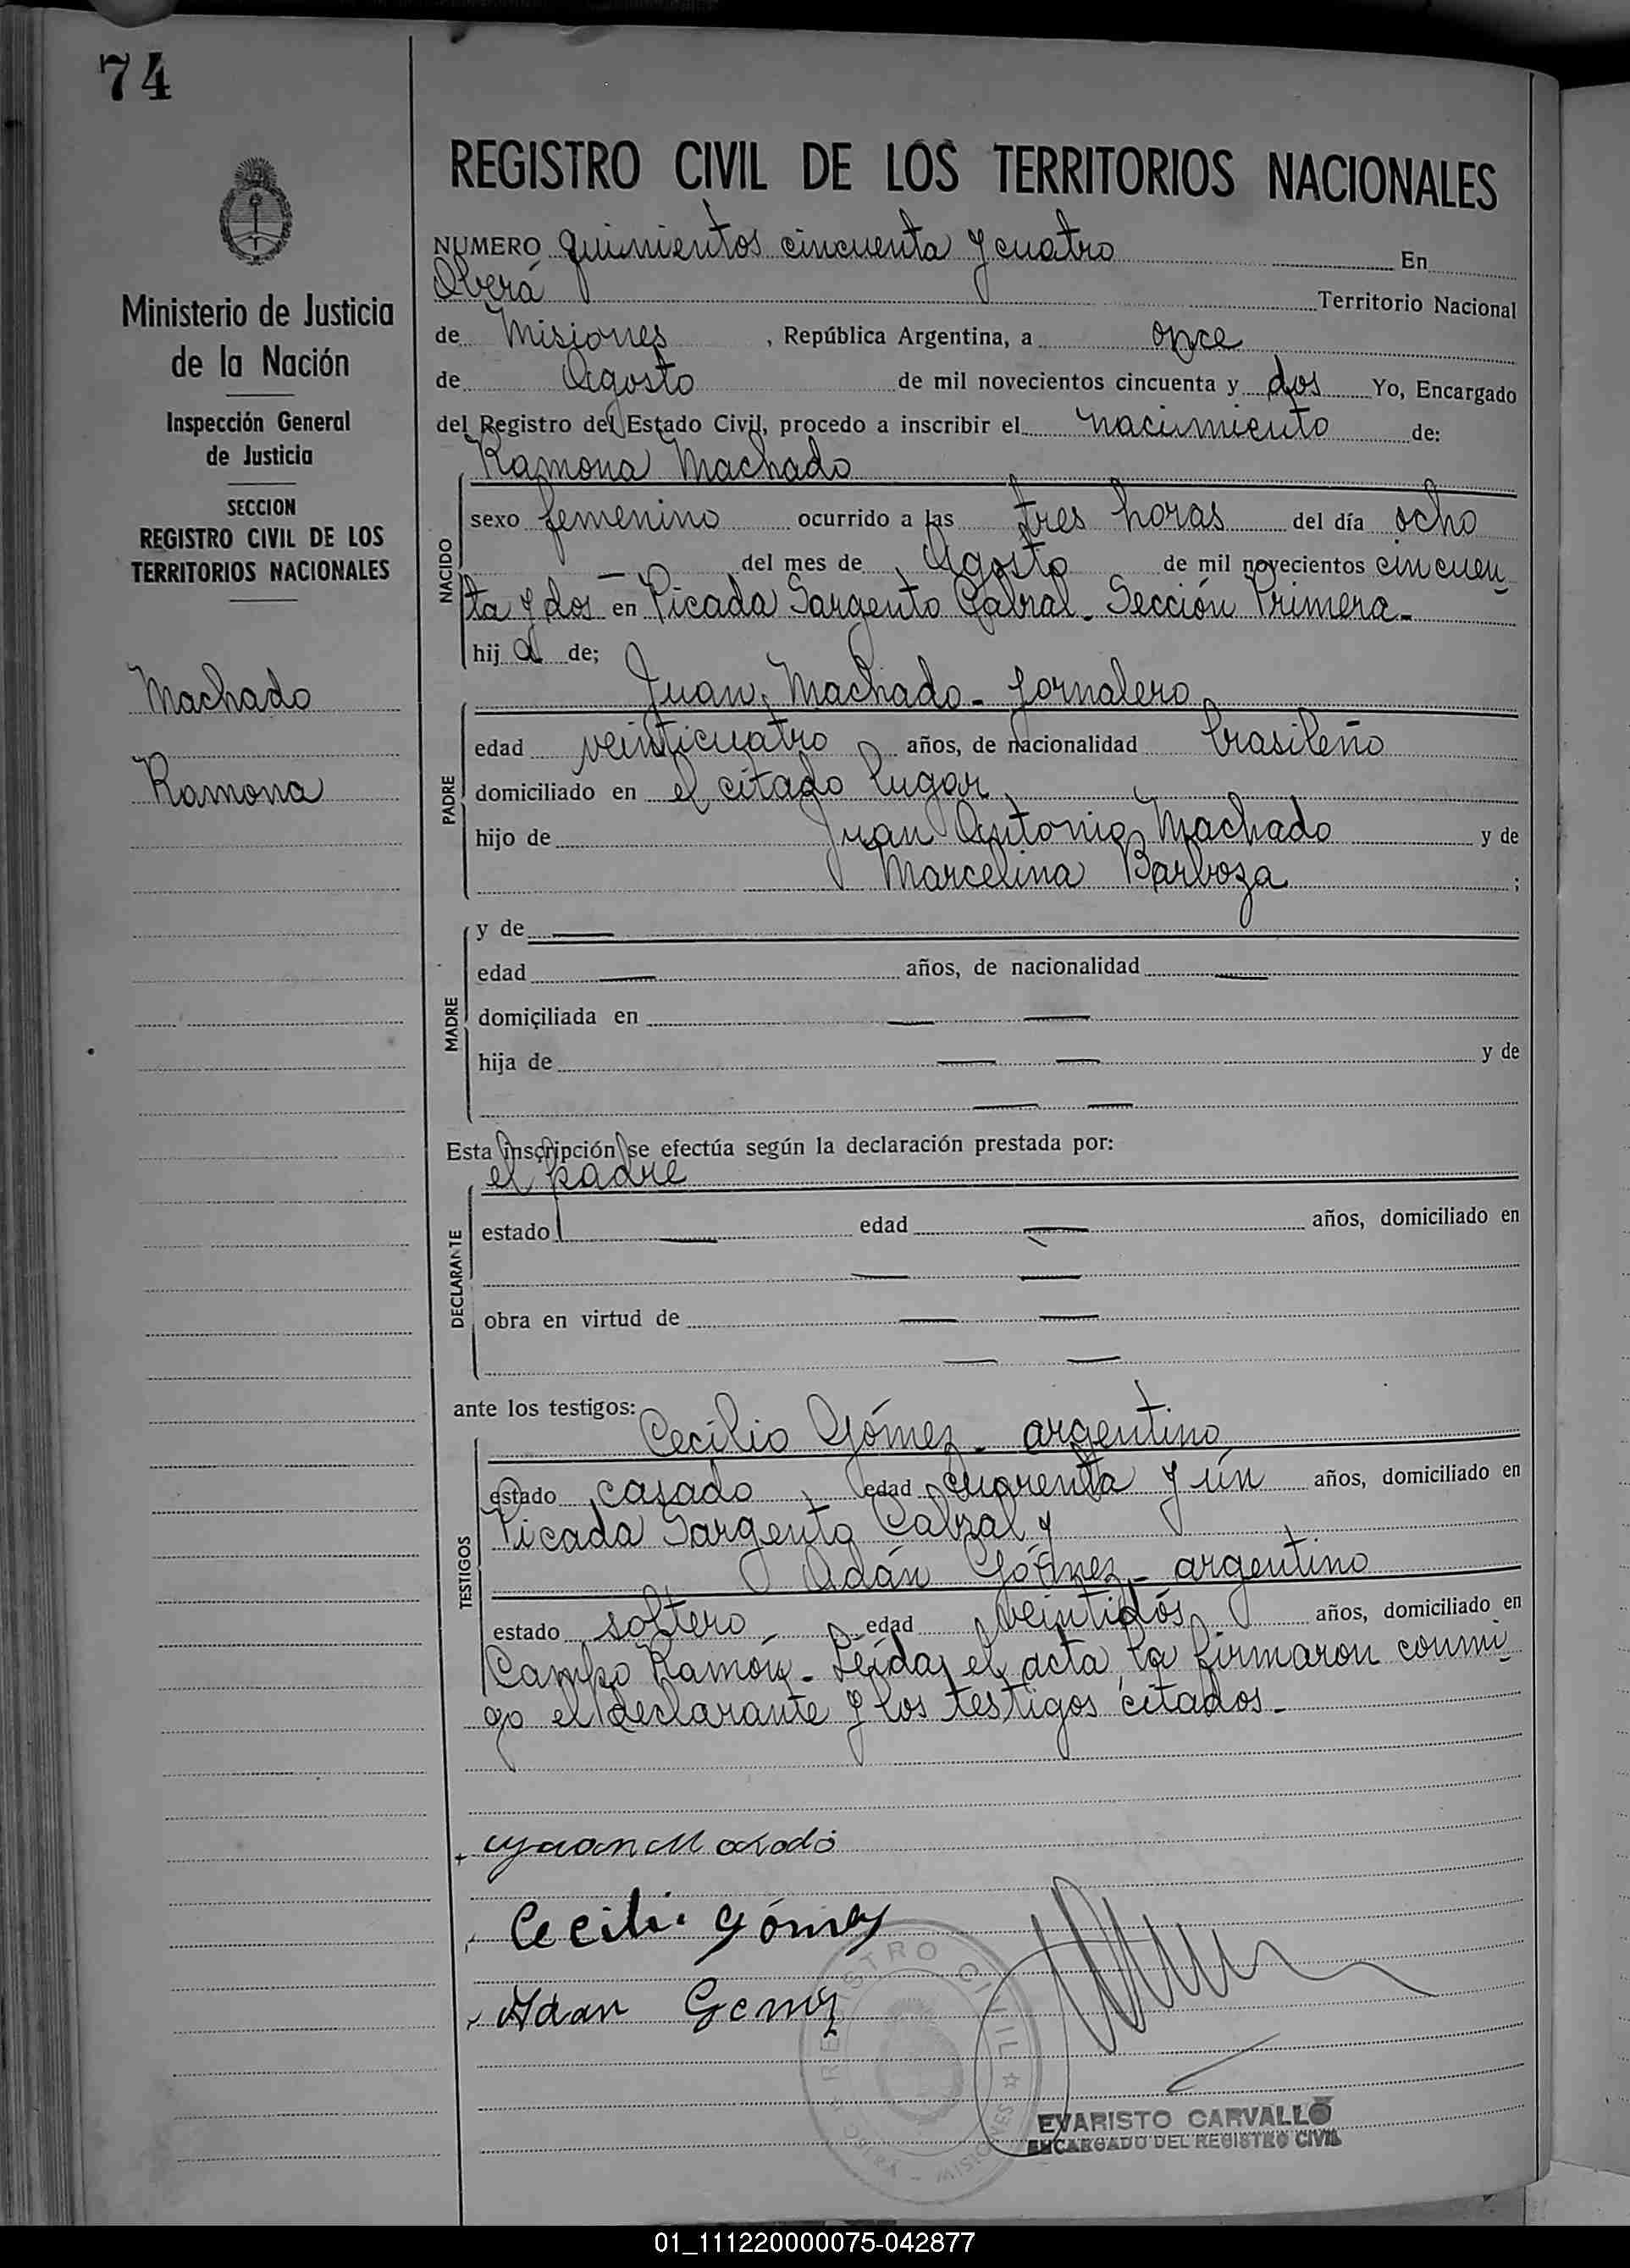 74
REGISTRO CIVIL DE LOS TERRITORIOS NACIONALES
Ministerio de Justicia
de la Nación
Inspección General
de Justicia
SECCION
REGISTRO CIVIL DE LOS
TERRITORIOS NACIONALES
Machado
Ramona
NUMERO quinientos cincuenta y cuatro En
Oberá Territorio Nacional
de Misiones, República Argentina, a once
de Agosto de mil novecientos cincuenta y dos Yo, Encargado
del Registro del Estado Civil, procedo a inscribir el nacimiento de:
Ramona Machado
NACIDO
sexo femenino ocurrido a las tres horas del día ocho
— del mes de Agosto de mil novecientos cincuen
ta y dos en Picada Sargento Cabral - Sección Primera -
hij a de;
Juan Machado - jornalero
PADRE
edad veinticuatro años, de nacionalidad brasileño
domiciliado en el citado lugar
hijo de Juan Antonio Machado y de
Marcelina Barboza ;
MADRE
y de —
edad — años, de nacionalidad —
domiciliada en — —
hija de — — y de
— —
Esta inscripción se efectúa según la declaración prestada por:
el padre
DECLARANTE
estado — edad — años, domiciliado en
— —
obra en virtud de — —
— —
ante los testigos:
Cecilio Gómez - argentino
TESTIGOS
estado casado edad cuarenta y ún años, domiciliado en
Picada Sargento Cabral y
Adán Gómez - argentino
estado soltero edad veintidós años, domiciliado en
Campo Ramón - Leída el acta la firmaron conmi
go el declarante y los testigos citados -
Juan Machado
Cecilio Gómez
Adan Gomez
REGISTRO CIVIL
OBERA - MISIONES
EVARISTO CARVALLO
ENCARGADO DEL REGISTRO CIVIL
01_111220000075-042877